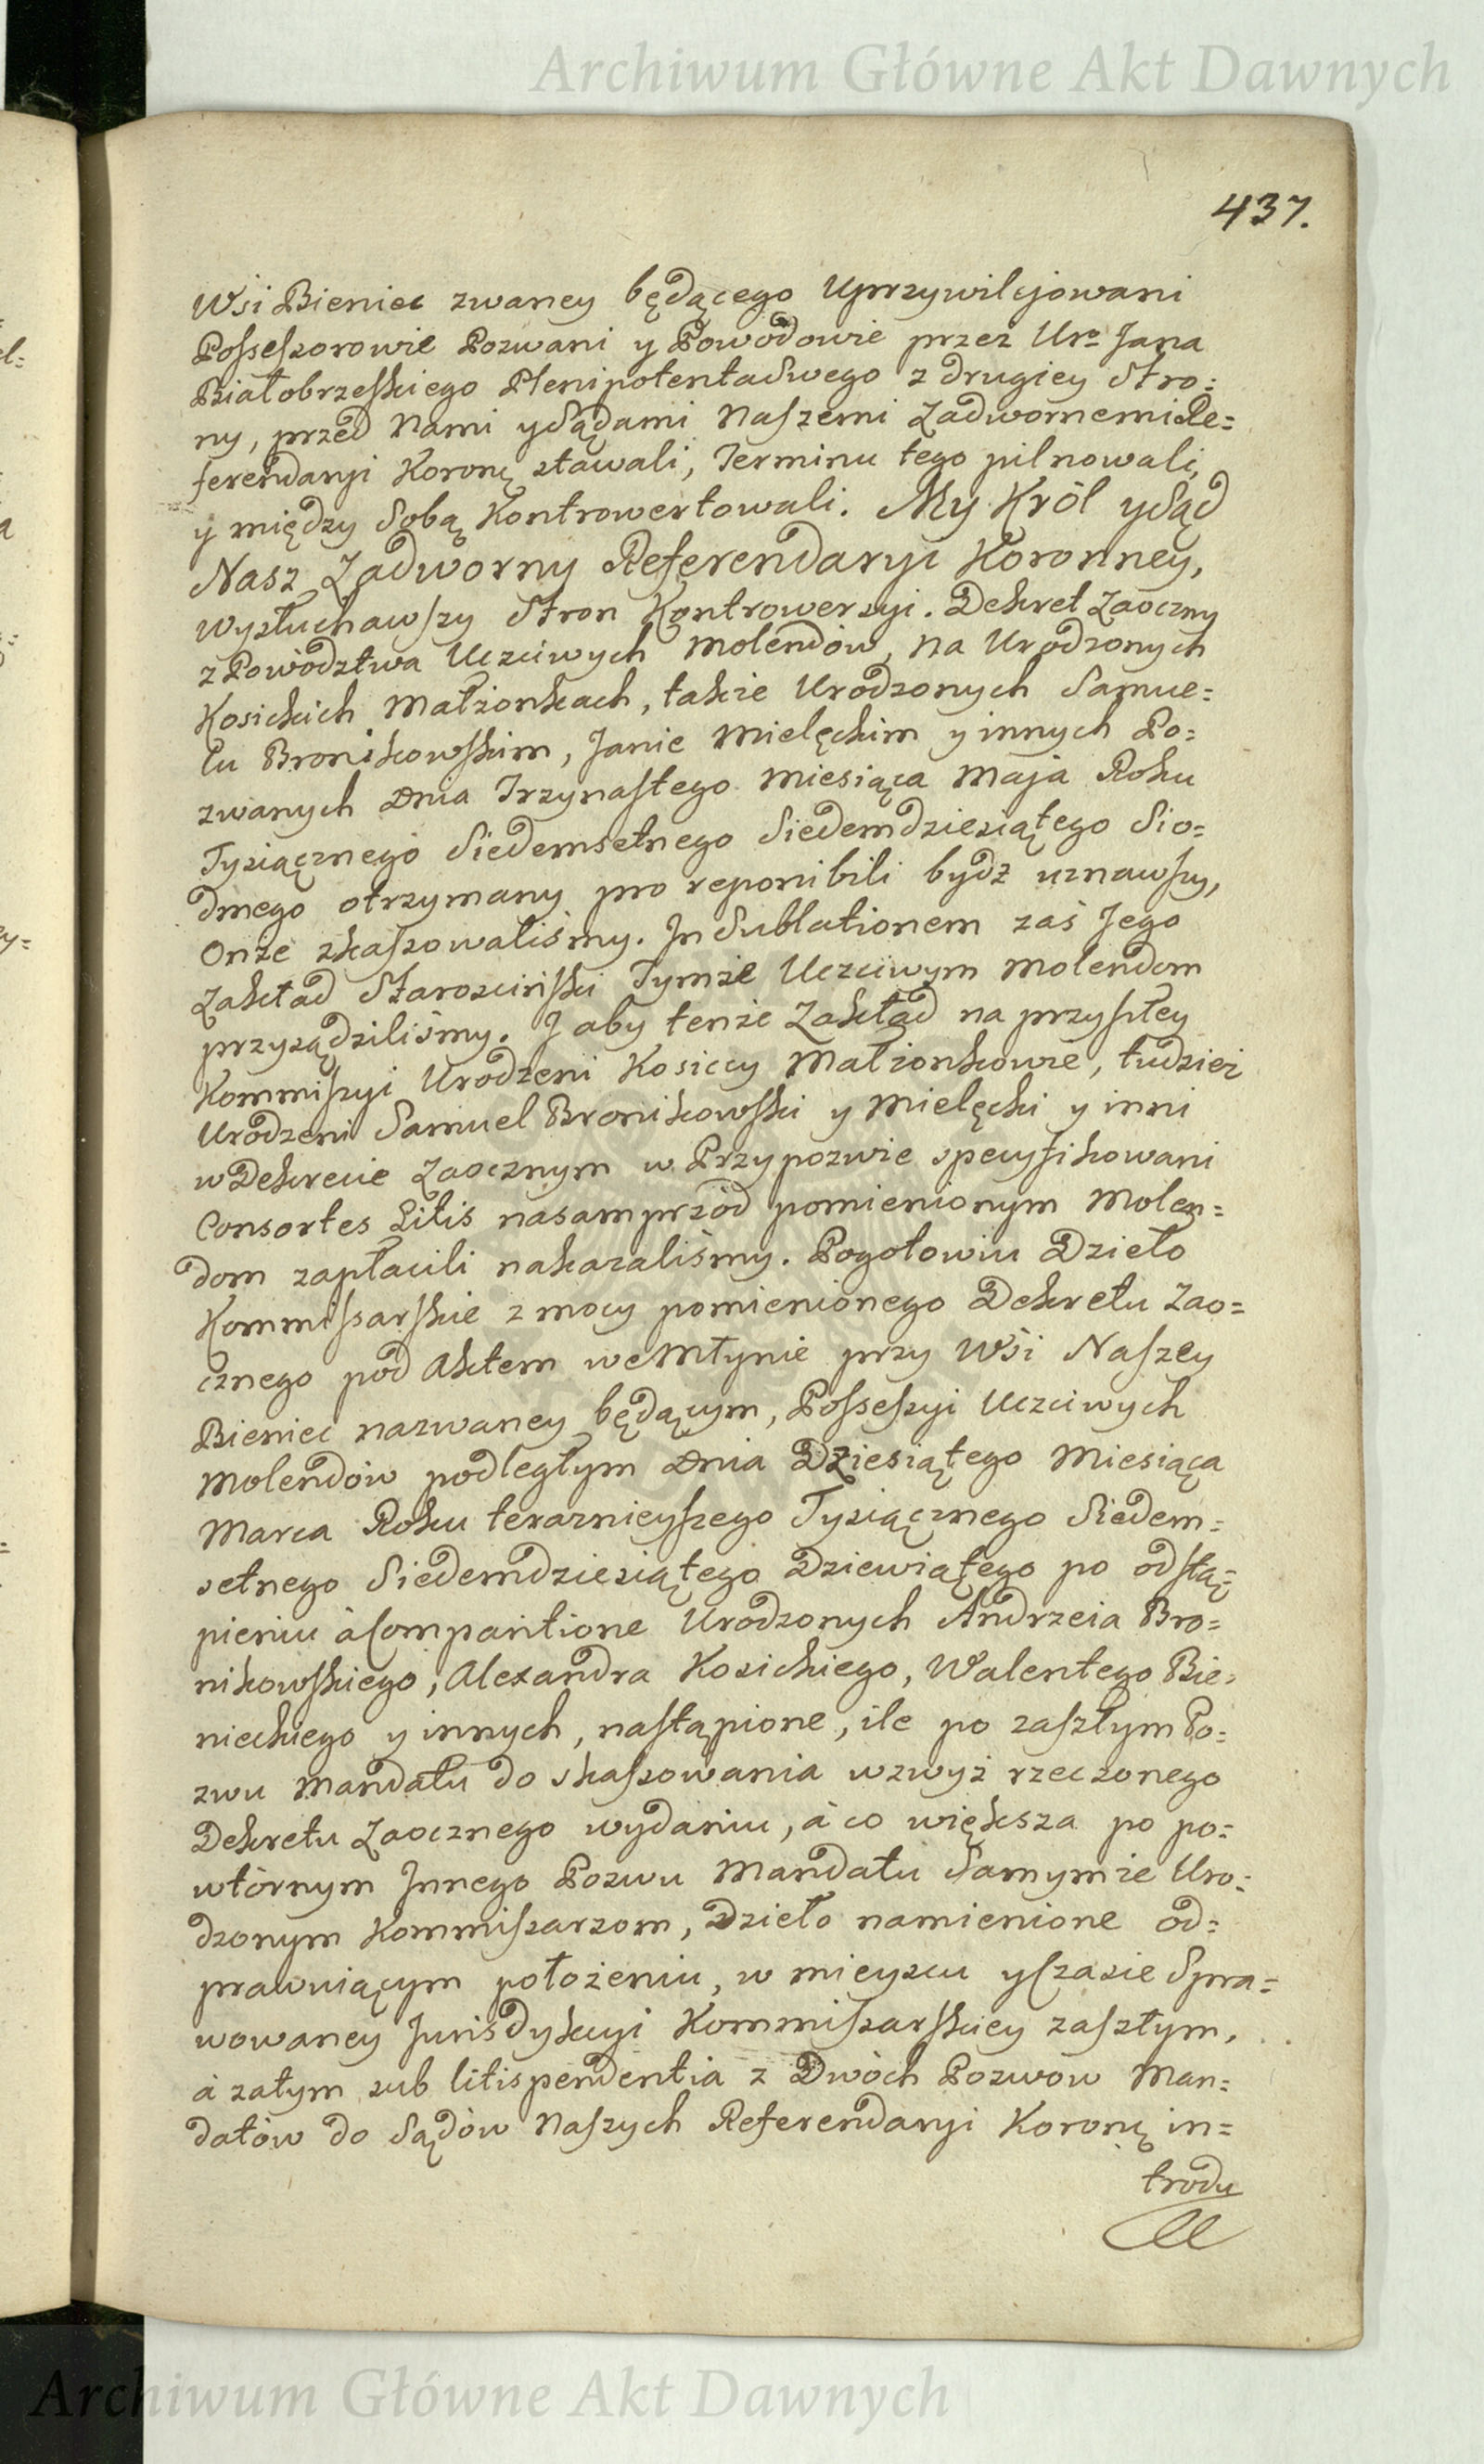 Archiwum Główne Akt Dawnych
437.
Wsi Bieniec zwaney będącego Uprzywilejowani
Possessorowie Pozwani y Powodowie przez Uro Jana
Białobrzeskiego Plenipotentaswego z drugiey Stro=
ny, przed Nami y Sądami Naszemi Zadwornemi Re=
ferendaryi Koronę stawali, Terminu tego pilnowali,
y między Sobą Kontrowertowali. My Król y Sąd
Nasz Zadworny Referendaryi Koronney,
wysłuchawszy Stron Kontrowersyi. Dekret Zaoczny
z Powództwa Uczciwych Molendów, na Urodzonych
Kosickich Małżonkach, także Urodzonych Samue=
lu Bronikowskim, Janie Mielęckim y innych Po=
zwanych Dnia Trzynastego Miesiąca Maja Roku
Tysiącznego Siedemsetnego Siedemdziesiątego Sio=
dmego otrzymany pro reponibili bydź uznawszy,
Onże skassowaliśmy. In Sublationem zaś Jego
Zakład Starosciński Tymże Uczciwym Molendom
przysądziliśmy. J aby tenże Zakład na przyszłey
Kommissyi Urodzeni Kosiccy Małżonkowie, tudzież
Urodzeni Samuel Bronikowski y Mielęcki y inni
w Dekrecie Zaocznym w Przypozwie specyfikowani
Consortes Litis nasamprzód pomienionym Molen=
dom zapłacili nakazaliśmy. Pogotowiu Dzieło
Kommissarskie z mocy pomienionego Dekretu Zao=
cznego pod Aktem we Młynie przy Wsi Naszey
Bieniec nazwaney będącym, Possessyi Uczciwych
Molendów podległym Dnia Dziesiątego Miesiąca
Marca Roku terazniejszego Tysiącznego Siedem=
setnego Siedemdziesiątego Dziewiątego po odstą=
pieniu à Comparitione Urodzonych Andrzeia Bro=
nikowskiego, Alexandra Kosickiego, Walentego Bie=
nieckiego y innych, nastąpione, ile po zaszłym Po=
zwu Mandatu do skassowania wzwyż rzeczonego
Dekretu Zaocznego wydaniu, à co większa po po=
wtórnym Innego Pozwu Mandatu Samymże Uro=
dzonym Kommissarzom, Dzieło namienione od=
prawuiącym położeniu, w mieyscu y Czasie Spra=
wowaney Jurisdykcyi Kommissarskiey zaszłym,
à zatym sub litispendentia z Dwóch Pozwow Man=
datów do Sądów Naszych Referendaryi Koronę in=
trodu
Archiwum Główne Akt Dawnych